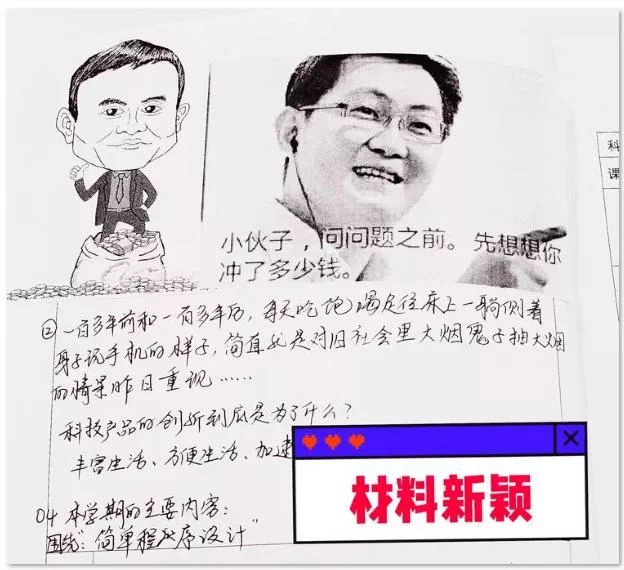 小伙子，问问题之前。先想想你
冲了多少钱。
② 一百多年前和一百多年后，每天吃饱喝足往床上一躺侧着
身子玩手机的样子，简直就是对旧社会里大烟鬼子抽大烟
的情景昨日重现……
科技产品的创新到底是为了什么？
丰富生活、方便生活、加速
04 本学期的主要内容：
围绕“简单程序设计”
材料新颖
科
课